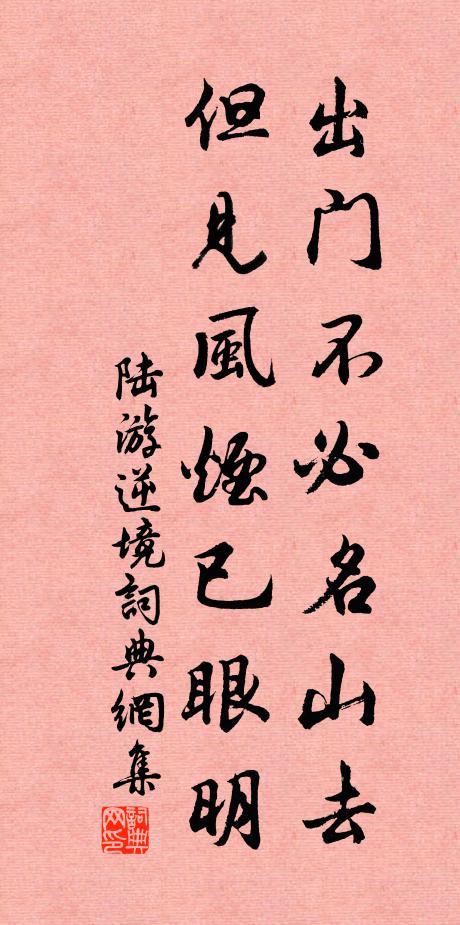 出门不必名山去
但见風煙已眼明
陆游逆境詞典網集
詞典网印